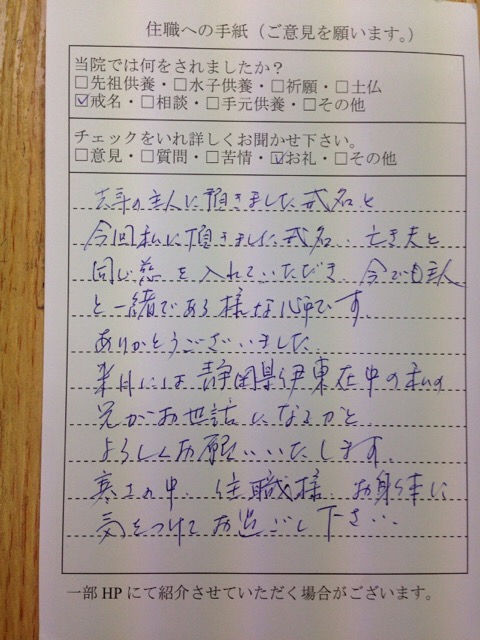 住職への手紙（ご意見を願います。）
当院では何をされましたか？
□先祖供養・□水子供養・□祈願・□土仏
☑戒名・□相談・□手元供養・□その他
チェックをいれ詳しくお聞かせ下さい。
□意見・□質問・□苦情・☑お礼・□その他
去年の主人に頂きました戒名と
今回私に頂きました戒名、亡き夫と
同じ慈を入れていただき、今でも主人
と一緒である様な心中です。
ありがとうございました。
来月には静岡県伊東在中の私の
兄がお世話になるかと
よろしくお願いいたします。
寒さの中、住職様、お身体に
気をつけてお過ごし下さい。
一部HPにて紹介させていただく場合がございます。